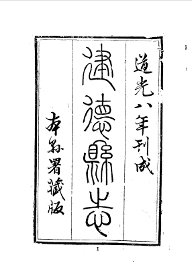 道光八年刊成
建德縣志
本縣署藏版